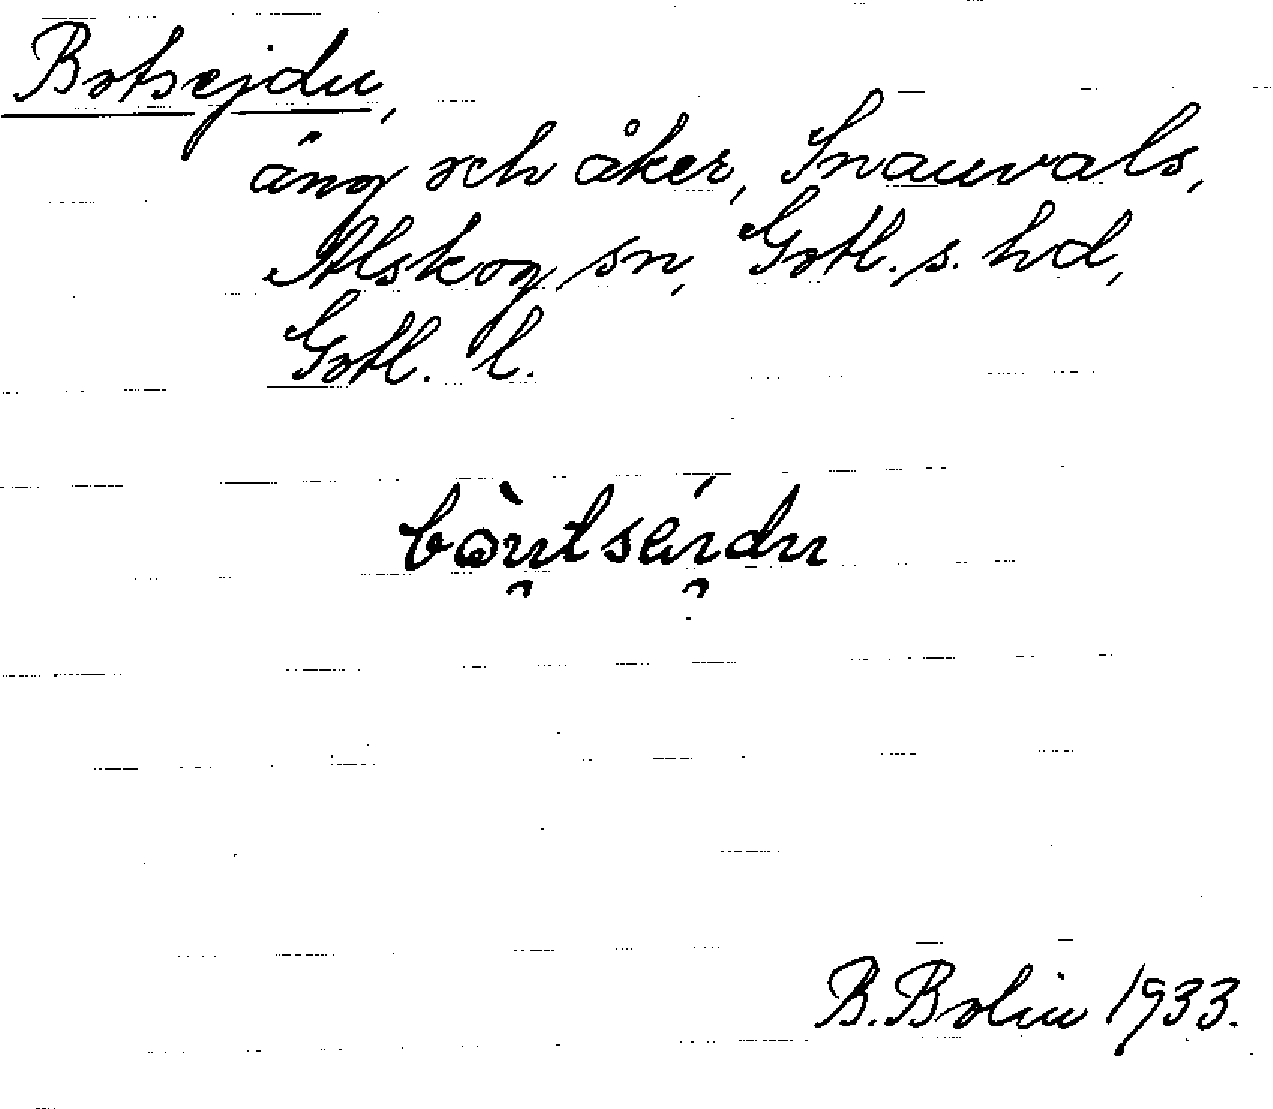 Botsejdu,
äng och åker, Snauvals,
Alskog sn, Gotl. s. hd,
Gotl. l.
bòu̯tsei̯du
B. Bolin 1933.